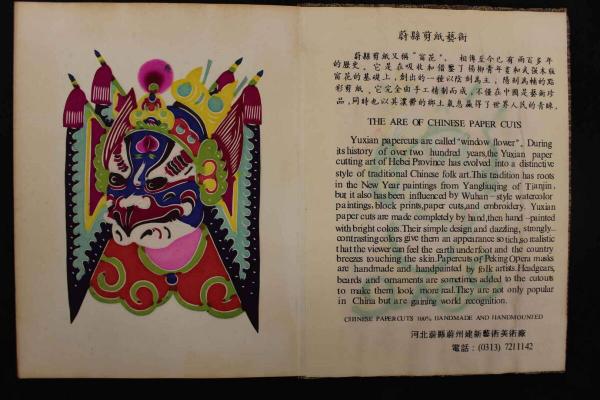 蔚縣剪紙藝術
蔚縣剪紙又稱“窗花”。相傳至今已有兩百多年
的歷史。它是在吸收和借鑒了楊柳青年畫和武強木版
窗花的基礎上，創出的一種以陰刻爲主，陽刻爲輔的點
彩剪紙。它完全由手工精制而成，不僅在中國是藝術珍
品，同時也以其濃鬱的鄉土氣息贏得了世界人民的青睞。
THE ARE OF CHINESE PAPER CUTS
Yuxian papercuts are called "window flower". During
its history of over two hundred years,the Yuxian paper
cutting art of Hebei Province has evolved into a distinctive
style of traditional Chinese folk art.This tradition has roots
in the New Year paintings from Yangliuqing of Tianjin,
but it also has been influenced by Wuhan-style watercolor
paintings, block prints,paper cuts,and embroidery. Yuxian
paper cuts are made completely by hand,then hand-painted
with bright colors.Their simple design and dazzling, strongly...
contrasting colors give them an appearance so rich,so realistic
that the viewer can feel the earth underfoot and the country
breezes touching the skin.Papercuts of Peking Opera masks
are handmade and handpainted by folk artists.Headgears,
beards and ornaments are sometimes added to the cutouts
to make them look more real.They are not only popular
in China but are gaining world recognition.
CHINESE PAPERCUTS 100% HANDMADE AND HANDMOUNTED
河北蔚縣蔚州建新藝術美術廠
電話：(0313) 7211142